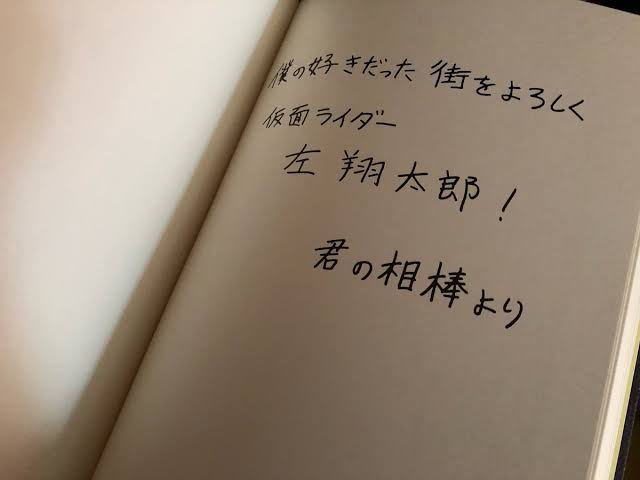 僕の好きだった街をよろしく
仮面ライダー
左翔太郎!
君の相棒より